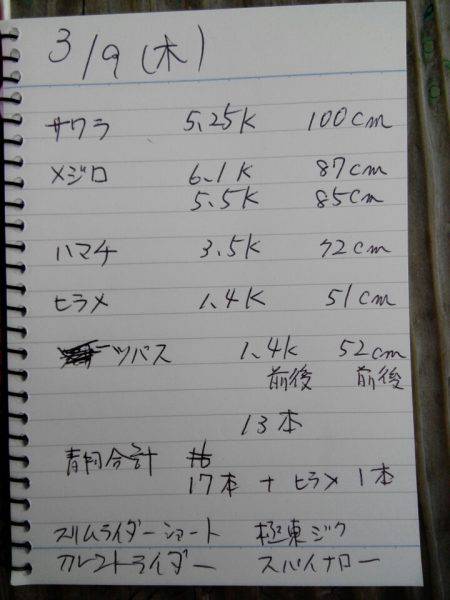 3/9(木)
サワラ 5.25K 100cm
メジロ 6.1K 87cm
5.5K 85cm
ハマチ 3.5K 72cm
ヒラメ 1.4K 51cm
ツバス 1.4K 52cm
前後 前後
13本
青物合計
17本 + ヒラメ 1本
スリムライダーショート 極東ジグ
カレントライダー スパイナロー